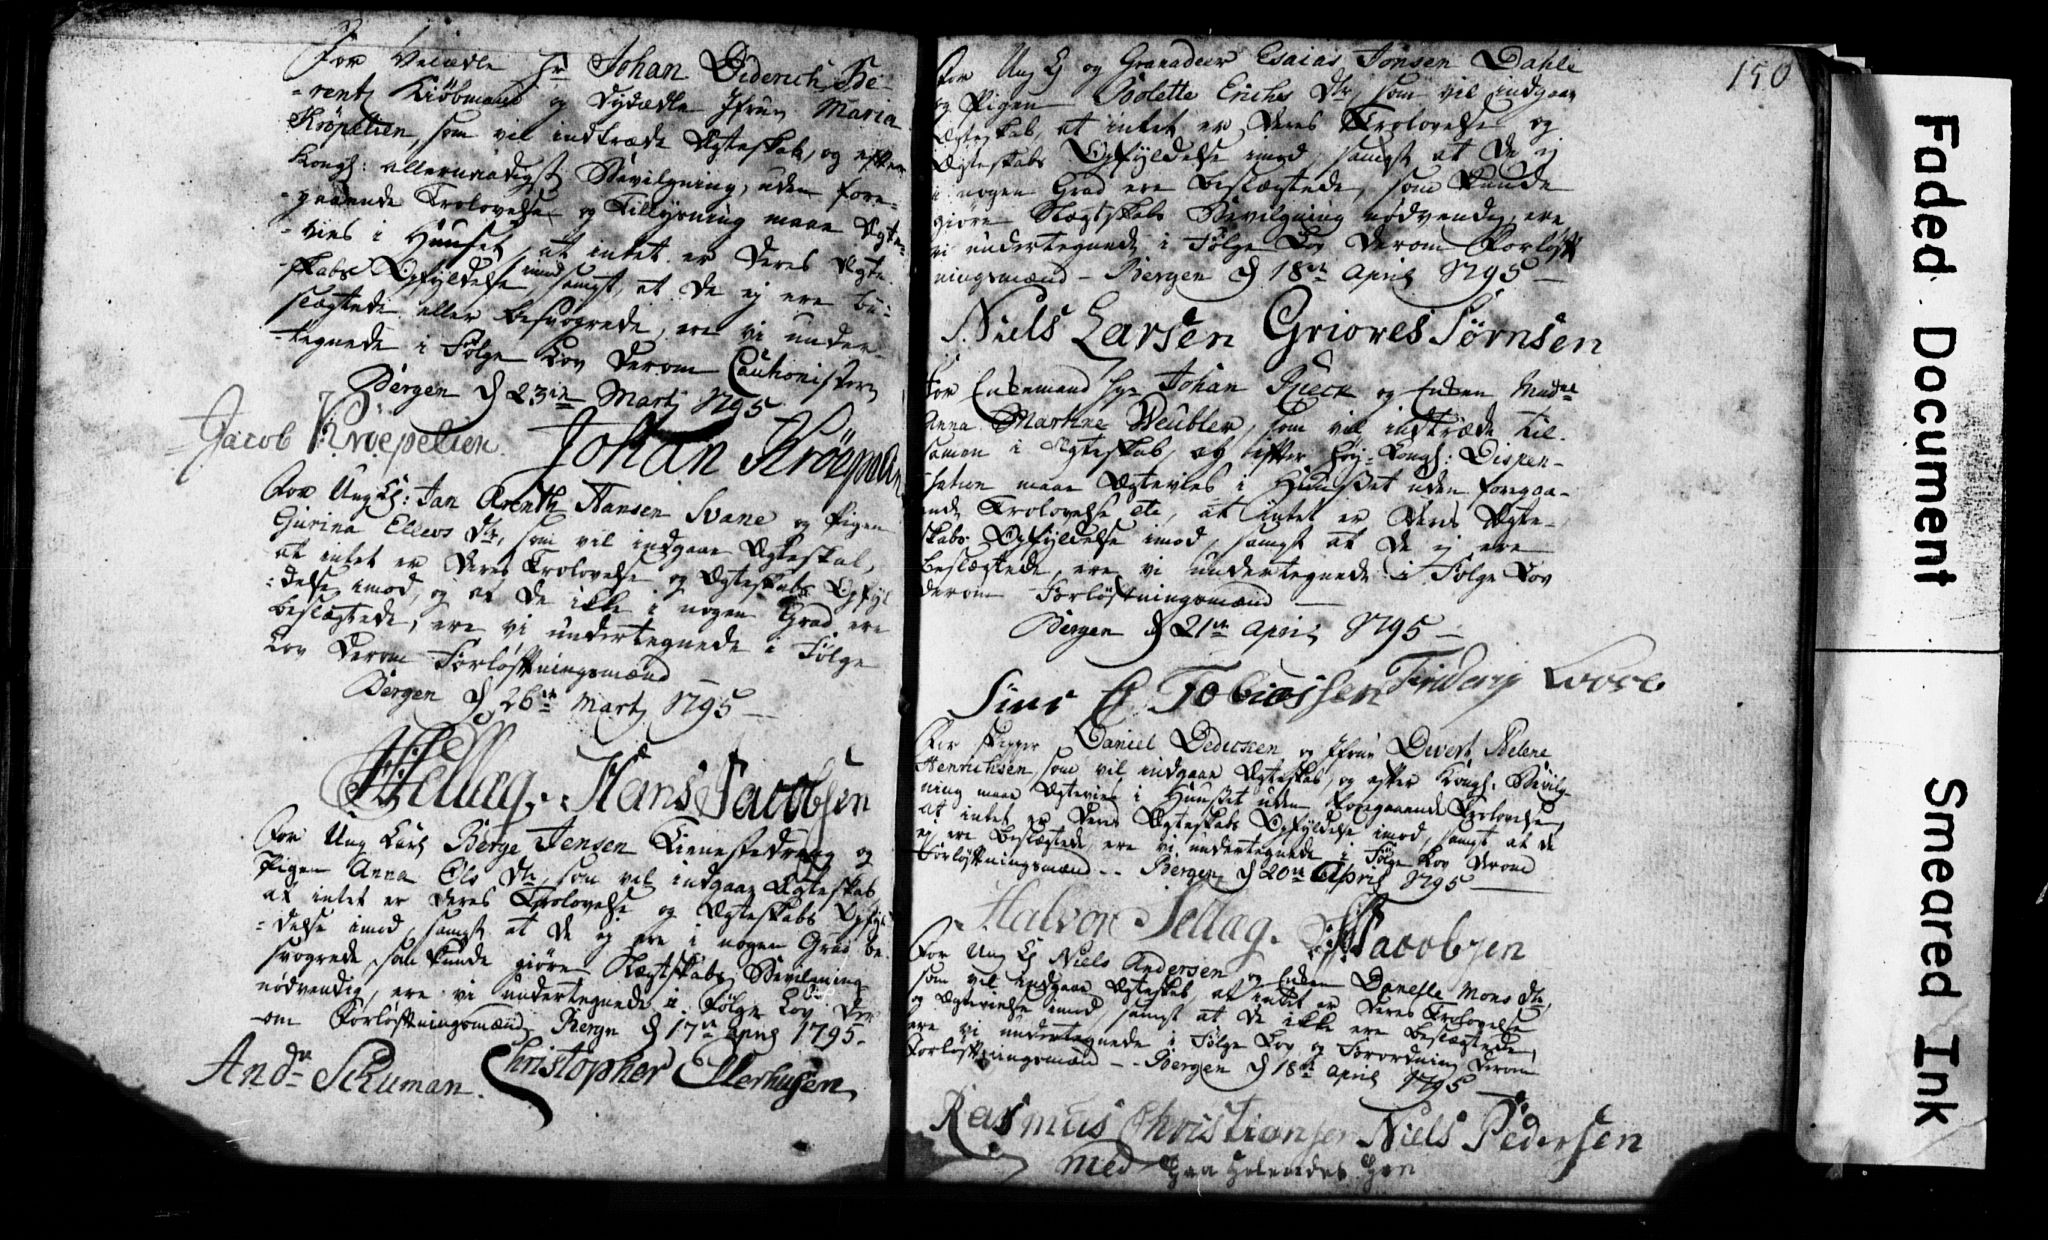 For Velædle Hr Johan Diderich Be-
-rentz Kiöbmand og Dydædle Jfrue Maria
Kröpelien, som vil indtræde Ægteskab, og efter
Kongl: allernaadigst Bevilgning, uden fore-
-gaaende Trolovelse og Tillysning maae Ægte-
-vies i Huuset, at intet er Deres Ægte-
-skabs Opfyldelse imod, samt at De ej ere be-
slægtede eller besvogrede, ere vi under-
-tegnede i Følge Lov derom Cautionister
Bergen d 23de Martj 1795
Jacob Kroepelien. Johan Kröepelien
For Ung K: Jan Arenth Hansen Svane og Pigen
Gurina Ellevs Dtr, som vil indgaae Ægteskab,
at intet er Deres Trolovelse og Ægteskabs Opfyl
-delse imod, og at De ikke i nogen Grad ere
beslægtede, ere vi undertegnede i Følge
Lov derom Forløftningsmænd
Bergen d 26de Martj 1795 —
HSellæg. Hans Jacobsen
For Ung Karl Børge Jensen Tienestedreng og
Pigen Anna Ols Dtr, som vil indgaae Ægteskab
at intet er Deres Trolovelse og Ægteskabs Opfyl
-delse imod, samt at De ej ere i nogen Grad be
svogrede, som kunde giøre Slægtskabs Bevilgning
nödvendig, ere vi undertegnede i Følge Lov Der
-om Forløftningsmænd Bergen d 17de April 1795.
Andr Schuman. Christopher Ellerhusen
150
For Ung K og Granadeer Esaias Jonsen Dahle
og Pigen Bolette Erichs Dtr, som vil indgaae
Ægteskab, at intet er Deres Trolovelse og
Ægteskabs Opfyldelse imod, samt at De ej
i nogen Grad ere beslægtede, som kunde
giøre Slægtskabs Bevilgning nödvendig, ere
vi undertegnede i Følge Lov derom Forløft
ningsmænd — Bergen d 18de April 1795 —
Niels Larsen Griores Törnsen
For Enkemand Hr Johan Rieck og Enken Madme
Anna Martine Deubler, som vil indtræde til-
samen i Ægteskab, og efter Høj-Kongl: Dispen-
sation maae Ægtevies i Huuset uden foregaa-
ende Trolovelse etc, at intet er Deres Ægte-
skabs Opfyldelse imod, samt at De ej ere
beslægtede, ere vi undertegnede i Følge Lov
derom Forløftningsmænd —
Bergen d 21de April 1795 —
Sivert Tobiassen Friderich Loose
For Skipper Daniel Dedecken og Jfrue Divert Helene
Henrichsen, som vil indgaae Ægteskab, og efter Kongl. Bevilg-
ning maae Ægtevies i Huuset uden foregaaende Trolovelse,
at intet er Deres Ægteskabs Opfyldelse imod, samt at de
ej ere beslægtede, ere vi undertegnede i Følge Lov derom
Forløftningsmænd -- Bergen d 20de April 1795 —
Halvor Sellæg. HJacobsen
For Ung K Niels Andersen og Enken Danelle Mons Dtr
som vil indgaae Ægteskab, at intet er Deres Trolovelse
og Ægtevielse imod, samt at De ikke ere beslægtede,
ere vi undertegnede i Følge Lov og Forordning derom
Forløftningsmænd -- Bergen d 18de April 1795
Rasmus Christiansen Niels Pedersen
med
Faded Document
Smeared Ink